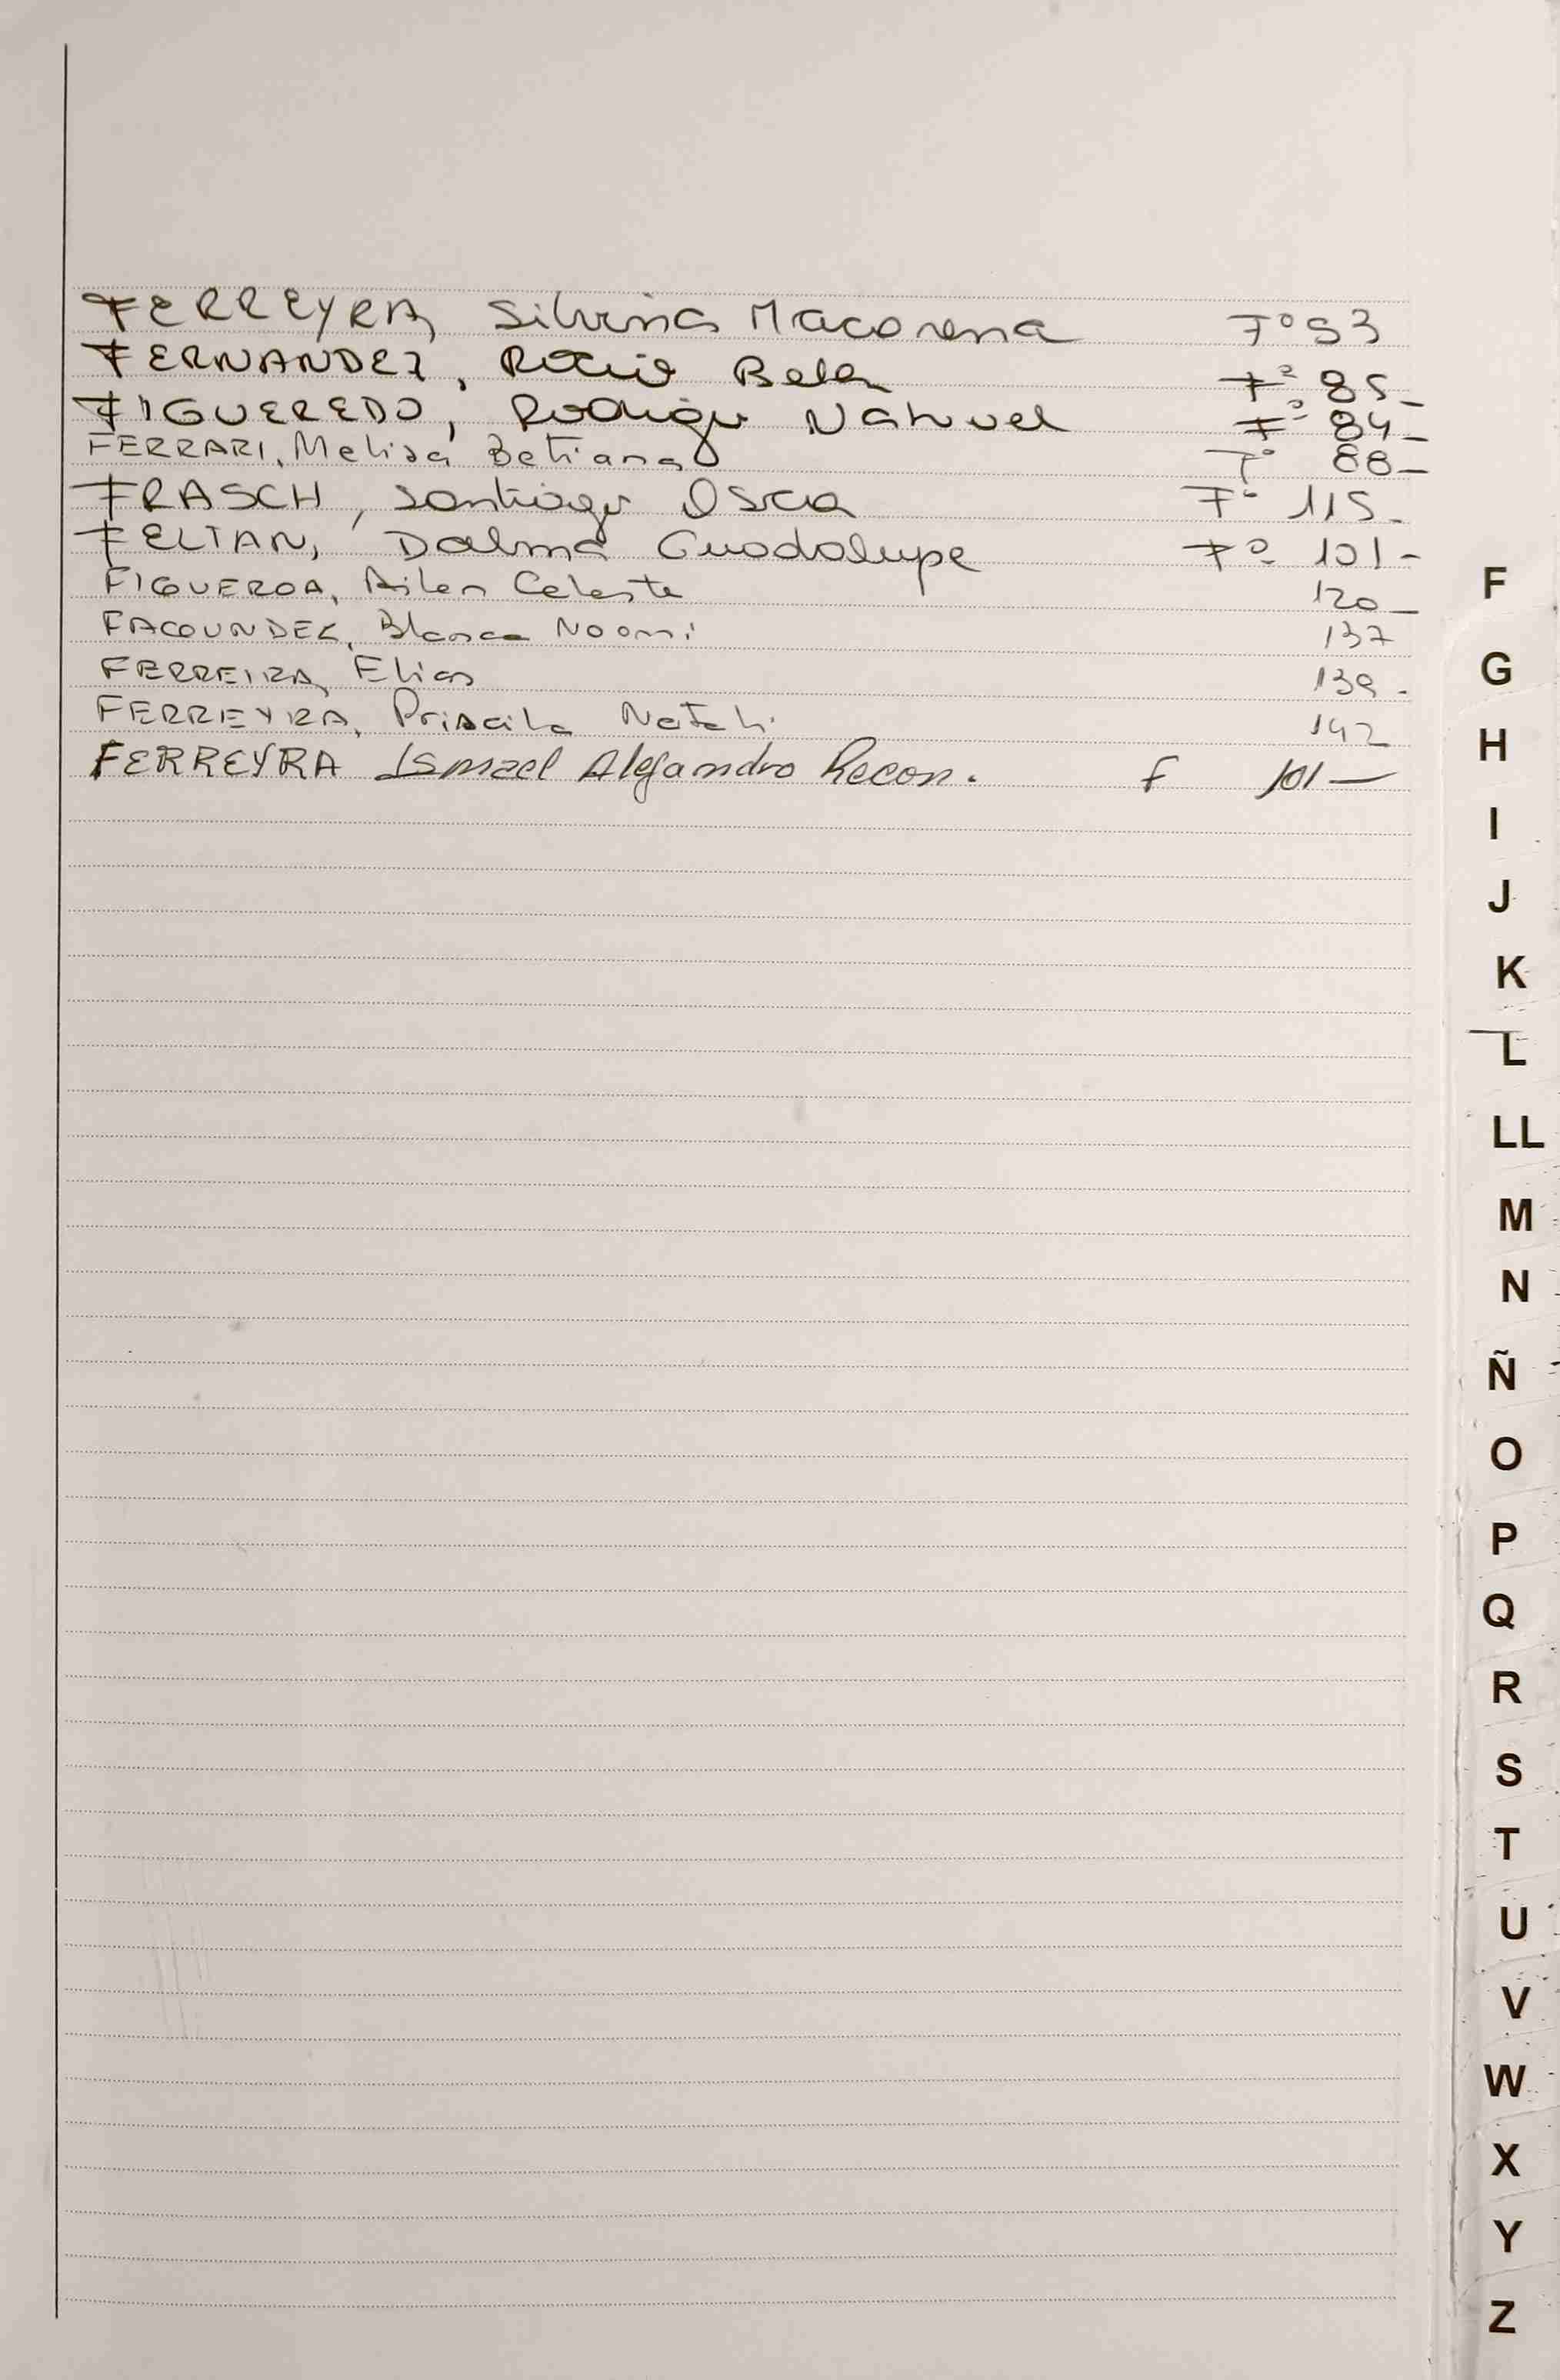 FERREYRA, Silvina Macarena F° 53
FERNANDEZ, Rocio Belen F° 85_
FIGUEREDO, Rodrigo Nahuel F° 84_
FERRARI, Melisa Betiana F° 88_
FRASCH, Santiago Oscar F° 115_
FELTAN, Dalma Guadalupe F° 101-
FIGUEROA, Ailen Celeste 120_
FACOUNDEZ, Blanca Noomi 137
FERREIRA, Elias 139-
FERREYRA, Priscila Natali 142
FERREYRA Ismael Alejandro Recon. F 101—
F
G
H
I
J
K
L
LL
M
N
Ñ
O
P
Q
R
S
T
U
V
W
X
Y
Z